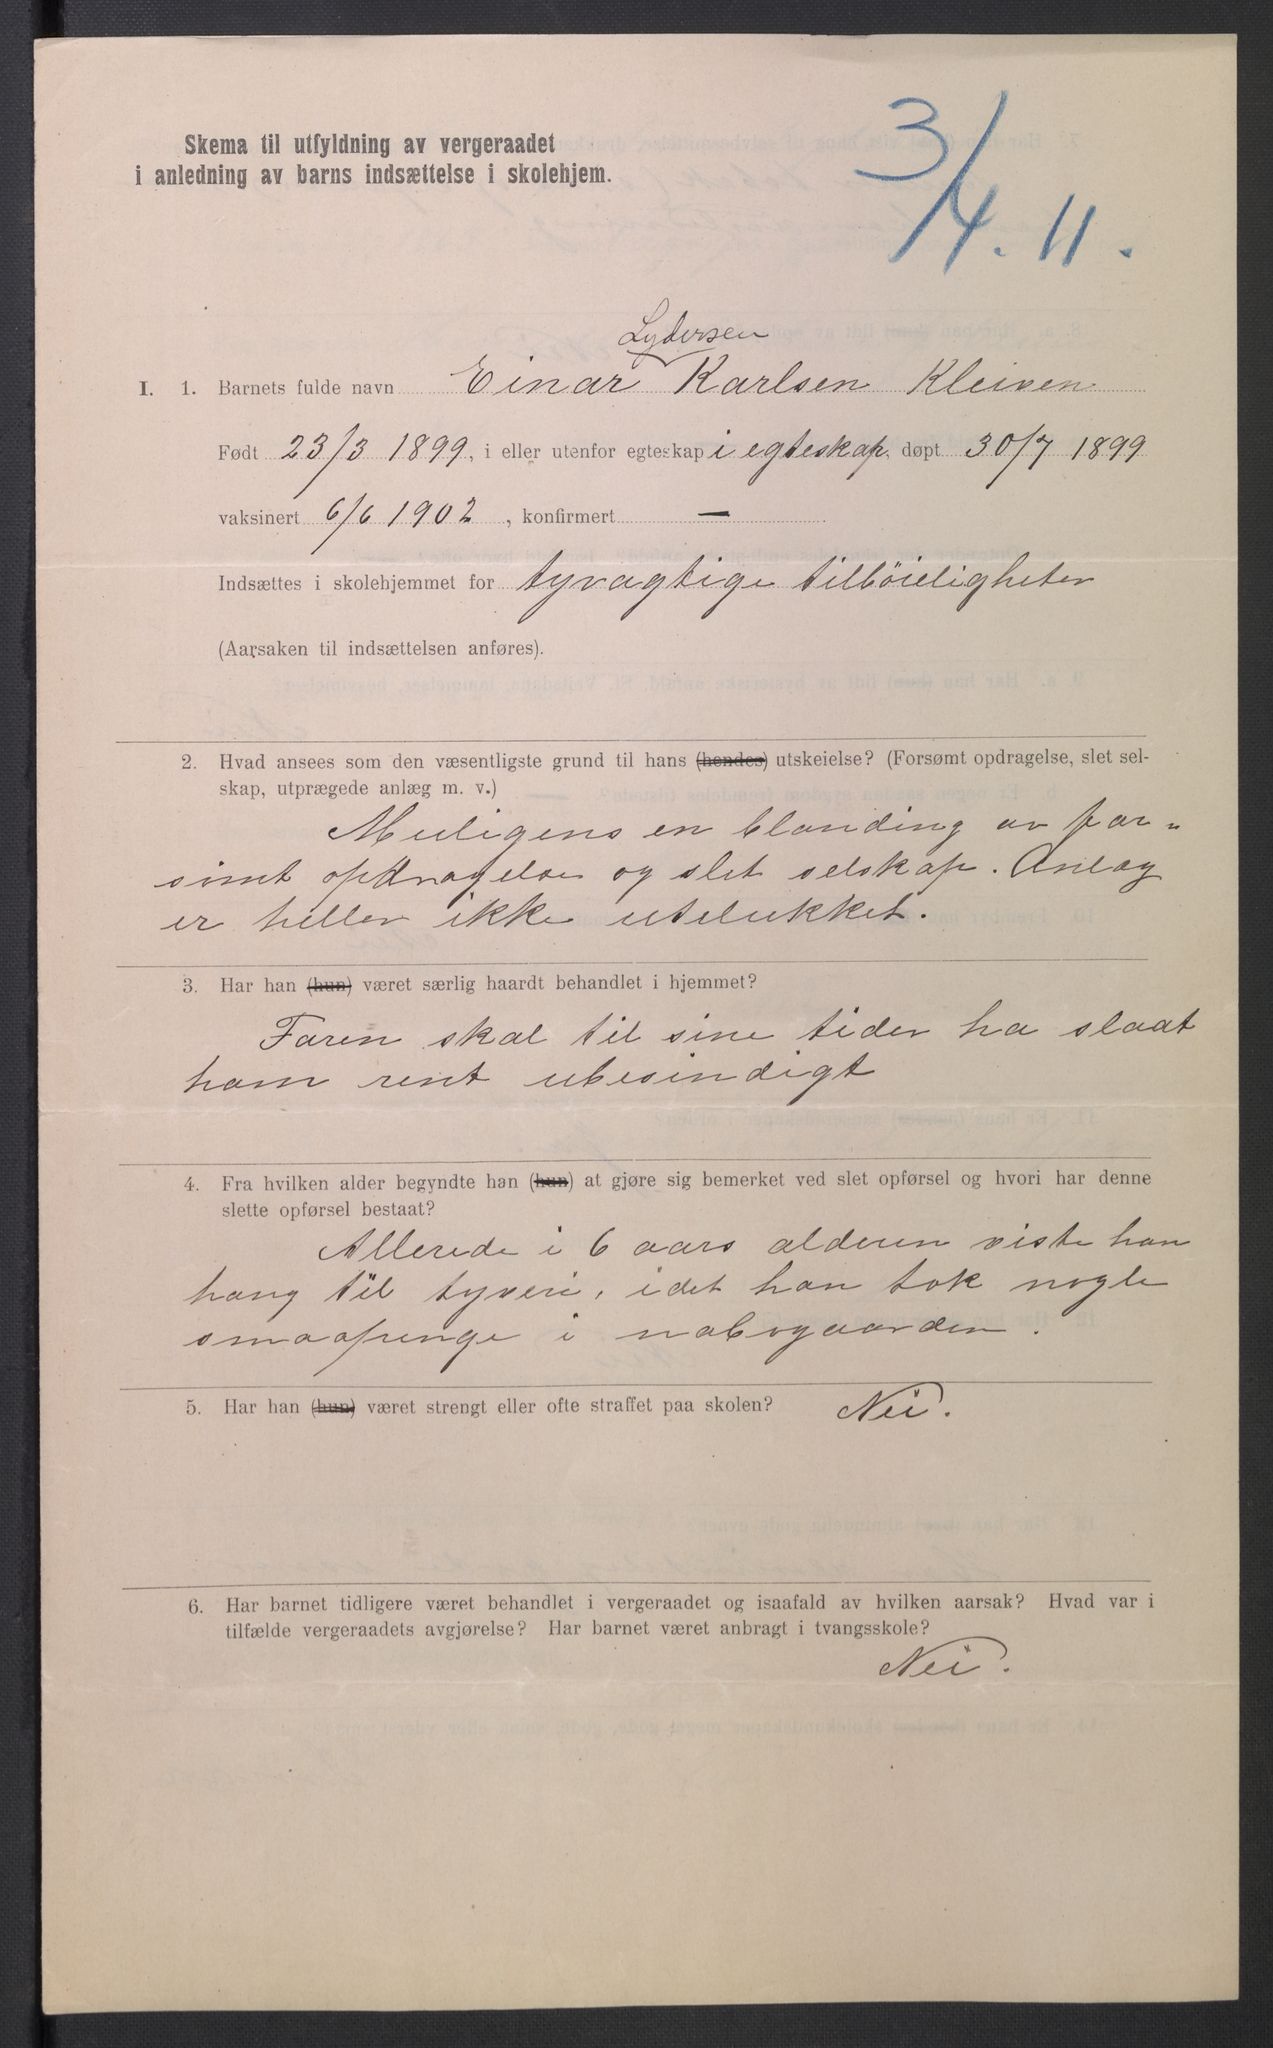 3/4. 11.
Skema til utfyldning av vergeraadet
i anledning av barns indsættelse i skolehjem.
Lydersen
I. 1. Barnets fulde navn Einar Karlsen Kleiven
Født 23/3 1899, i eller utenfor egteskap i egteskap, døpt 30/7 1899
vaksinert 6/6 1902, konfirmert —
Indsættes i skolehjemmet for tyvagtige tilböieligheter
(Aarsaken til indsættelsen anføres).
2. Hvad ansees som den væsentligste grund til hans (hendes) utskeielse? (Forsømt opdragelse, slet sel-
skap, utprægede anlæg m. v.)
Muligens en blanding av for-
sömt opdragelse og slet selskap. Anlæg
er heller ikke utelukket.
3. Har han (hun) været særlig haardt behandlet i hjemmet?
Faren skal til sine tider ha slaat
ham rent ubesindigt
4. Fra hvilken alder begyndte han (hun) at gjøre sig bemerket ved slet opførsel og hvori har denne
slette opførsel bestaat?
Allerede i 6 aars alderen viste han
hang til tyveri, idet han tok nogle
smaapenge i nabogaarden.
5. Har han (hun) været strengt eller ofte straffet paa skolen? Nei.
6. Har barnet tidligere været behandlet i vergeraadet og isaafald av hvilken aarsak? Hvad var i
tilfælde vergeraadets avgjørelse? Har barnet været anbragt i tvangsskole?
Nei.